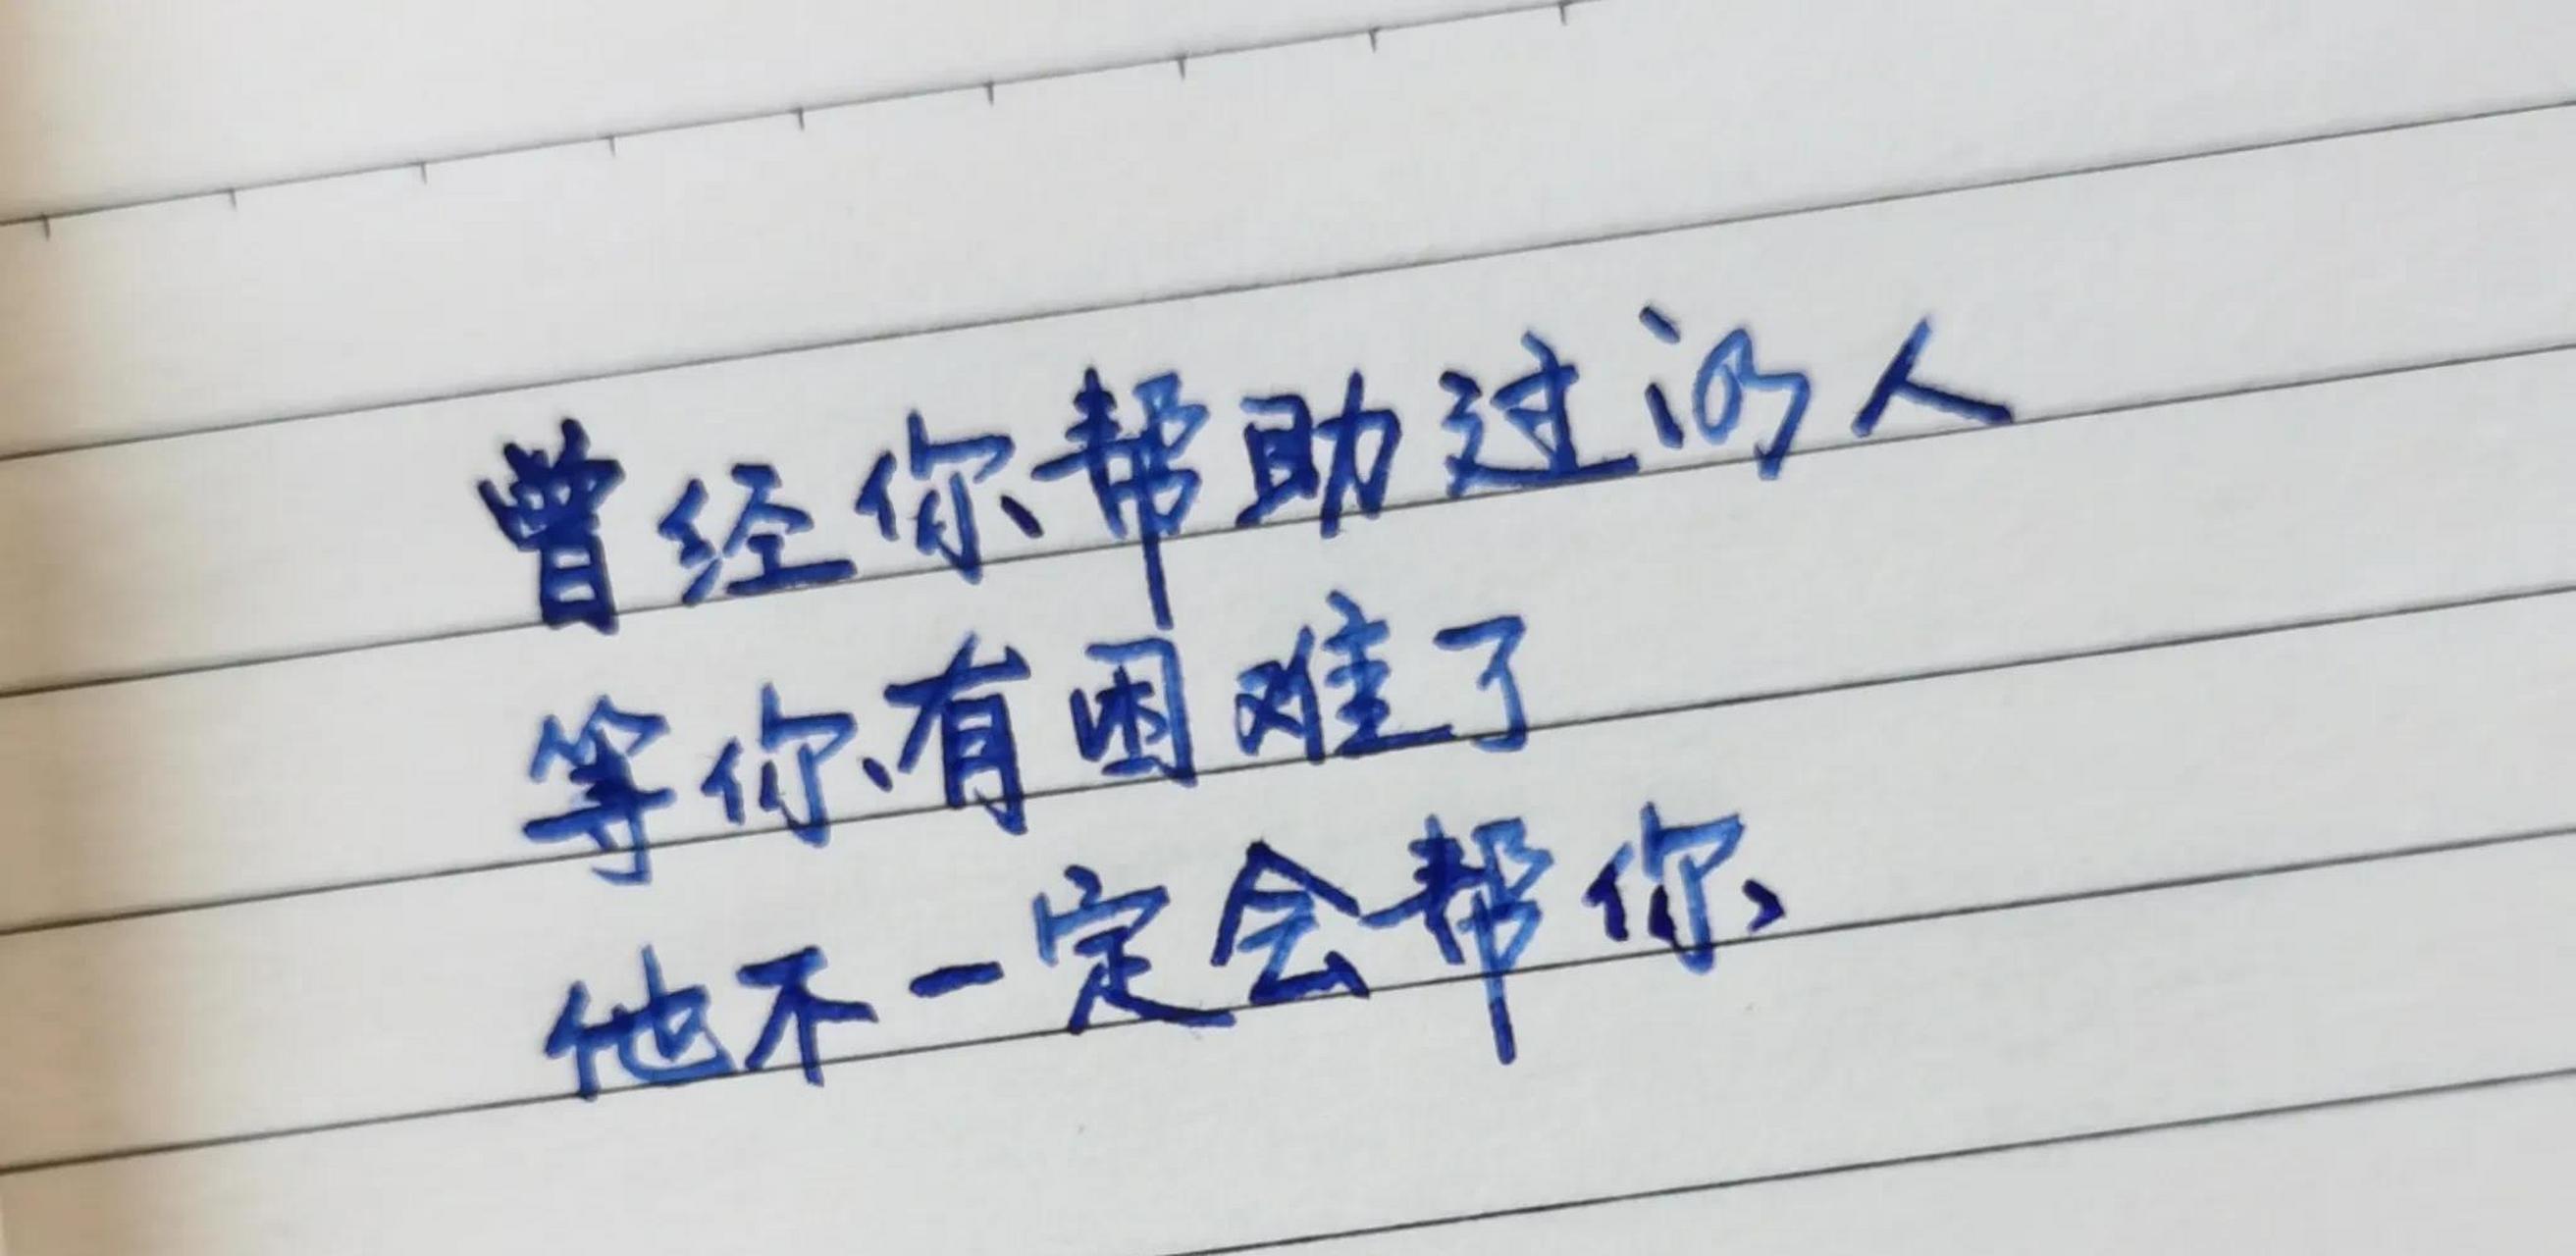 曾经你帮助过的人
等你有困难了
他不一定会帮你